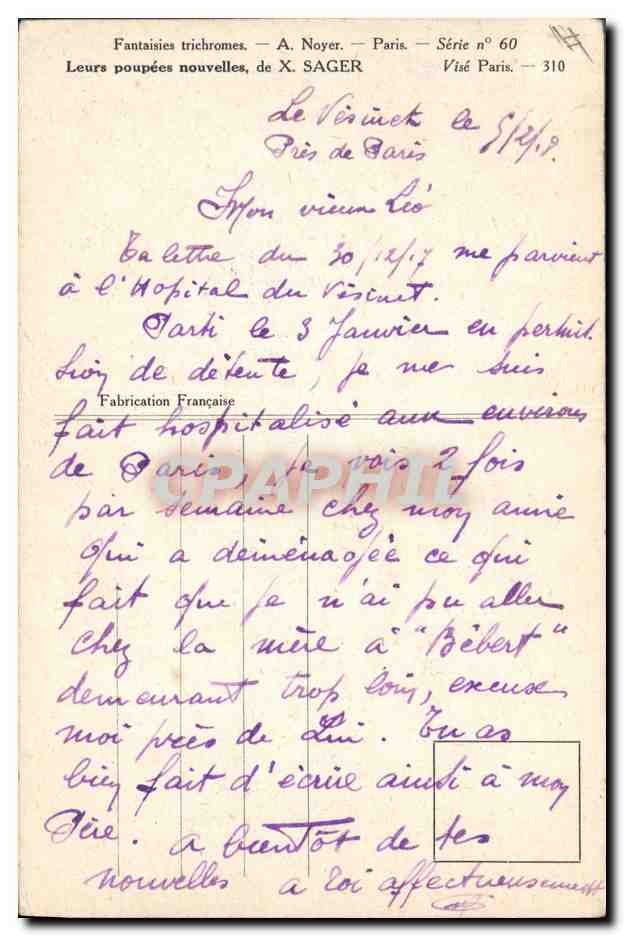 Fantaisies trichromes. — A. Noyer. — Paris. — Série n° 60
Leurs poupées nouvelles, de X. SAGER Visé Paris. — 310
Le Vésinet le 5/2/18.
Près de Paris
Mon vieux Léo
Ta lettre du 30/12/17 me parvient
à l'Hopital du Vésinet.
Parti le 3 Janvier en permis
sion de détente, je me suis
Fabrication Française
fait hospitalisé aux environs
de Paris, je vais 2 fois
CPAPHIL
par semaine chez mon amie
qui a déménagée ce qui
fait que je n'ai pu aller
chez la mère à "Bébert"
demeurant trop loin, excuse
moi près de Lui. Tu as
bien fait d'écrire ainsi à mon
Père. a bientôt de tes
nouvelles a toi affectueusement